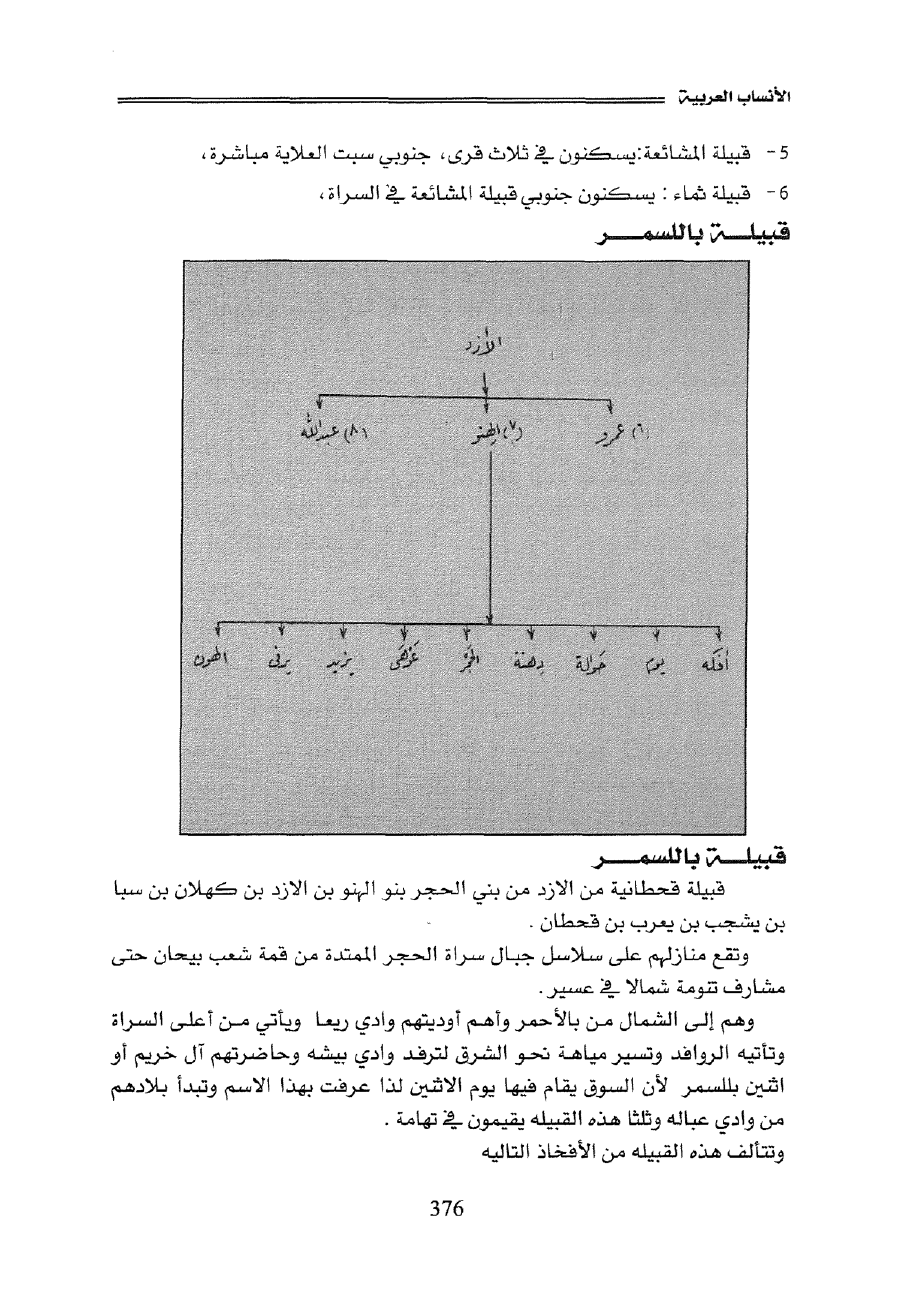 الأنساب العربية
5- قبيلة المشائعة:يسكنون في ثلاث قرى، جنوبي سبت العلاية مباشرة،
6- قبيلة ثماء : يسكنون جنوبي قبيلة المشائعة في السراة،
قبيلــة باللسمــر
الأزد
(٦) عمرو
(٧) الهنو
(٨) عبدالله
أفكه
يوم
حوالة
دهنة
الحجر
عوهى
يزيد
برقى
الهون
قبيلــة باللسمــر
قبيلة قحطانية من الازد من بني الحجر بنو الهنو بن الازد بن كهلان بن سبا
بن يشجب بن يعرب بن قحطان .
وتقع منازلهم على سلاسل جبال سراة الحجر الممتدة من قمة شعب بيحان حتى
مشارف تنومة شمالا في عسير .
وهم إلى الشمال من بالأحمر وأهم أوديتهم وادي ريعا ويأتي من أعلى السراة
وتأتيه الروافد وتسير مياهة نحو الشرق لترفد وادي بيشه وحاضرتهم آل خريم أو
اثنين بللسمر لأن السوق يقام فيها يوم الاثنين لذا عرفت بهذا الاسم وتبدأ بلادهم
من وادي عباله وثلثا هذه القبيله يقيمون في تهامة .
وتتألف هذه القبيله من الأفخاذ التاليه
376